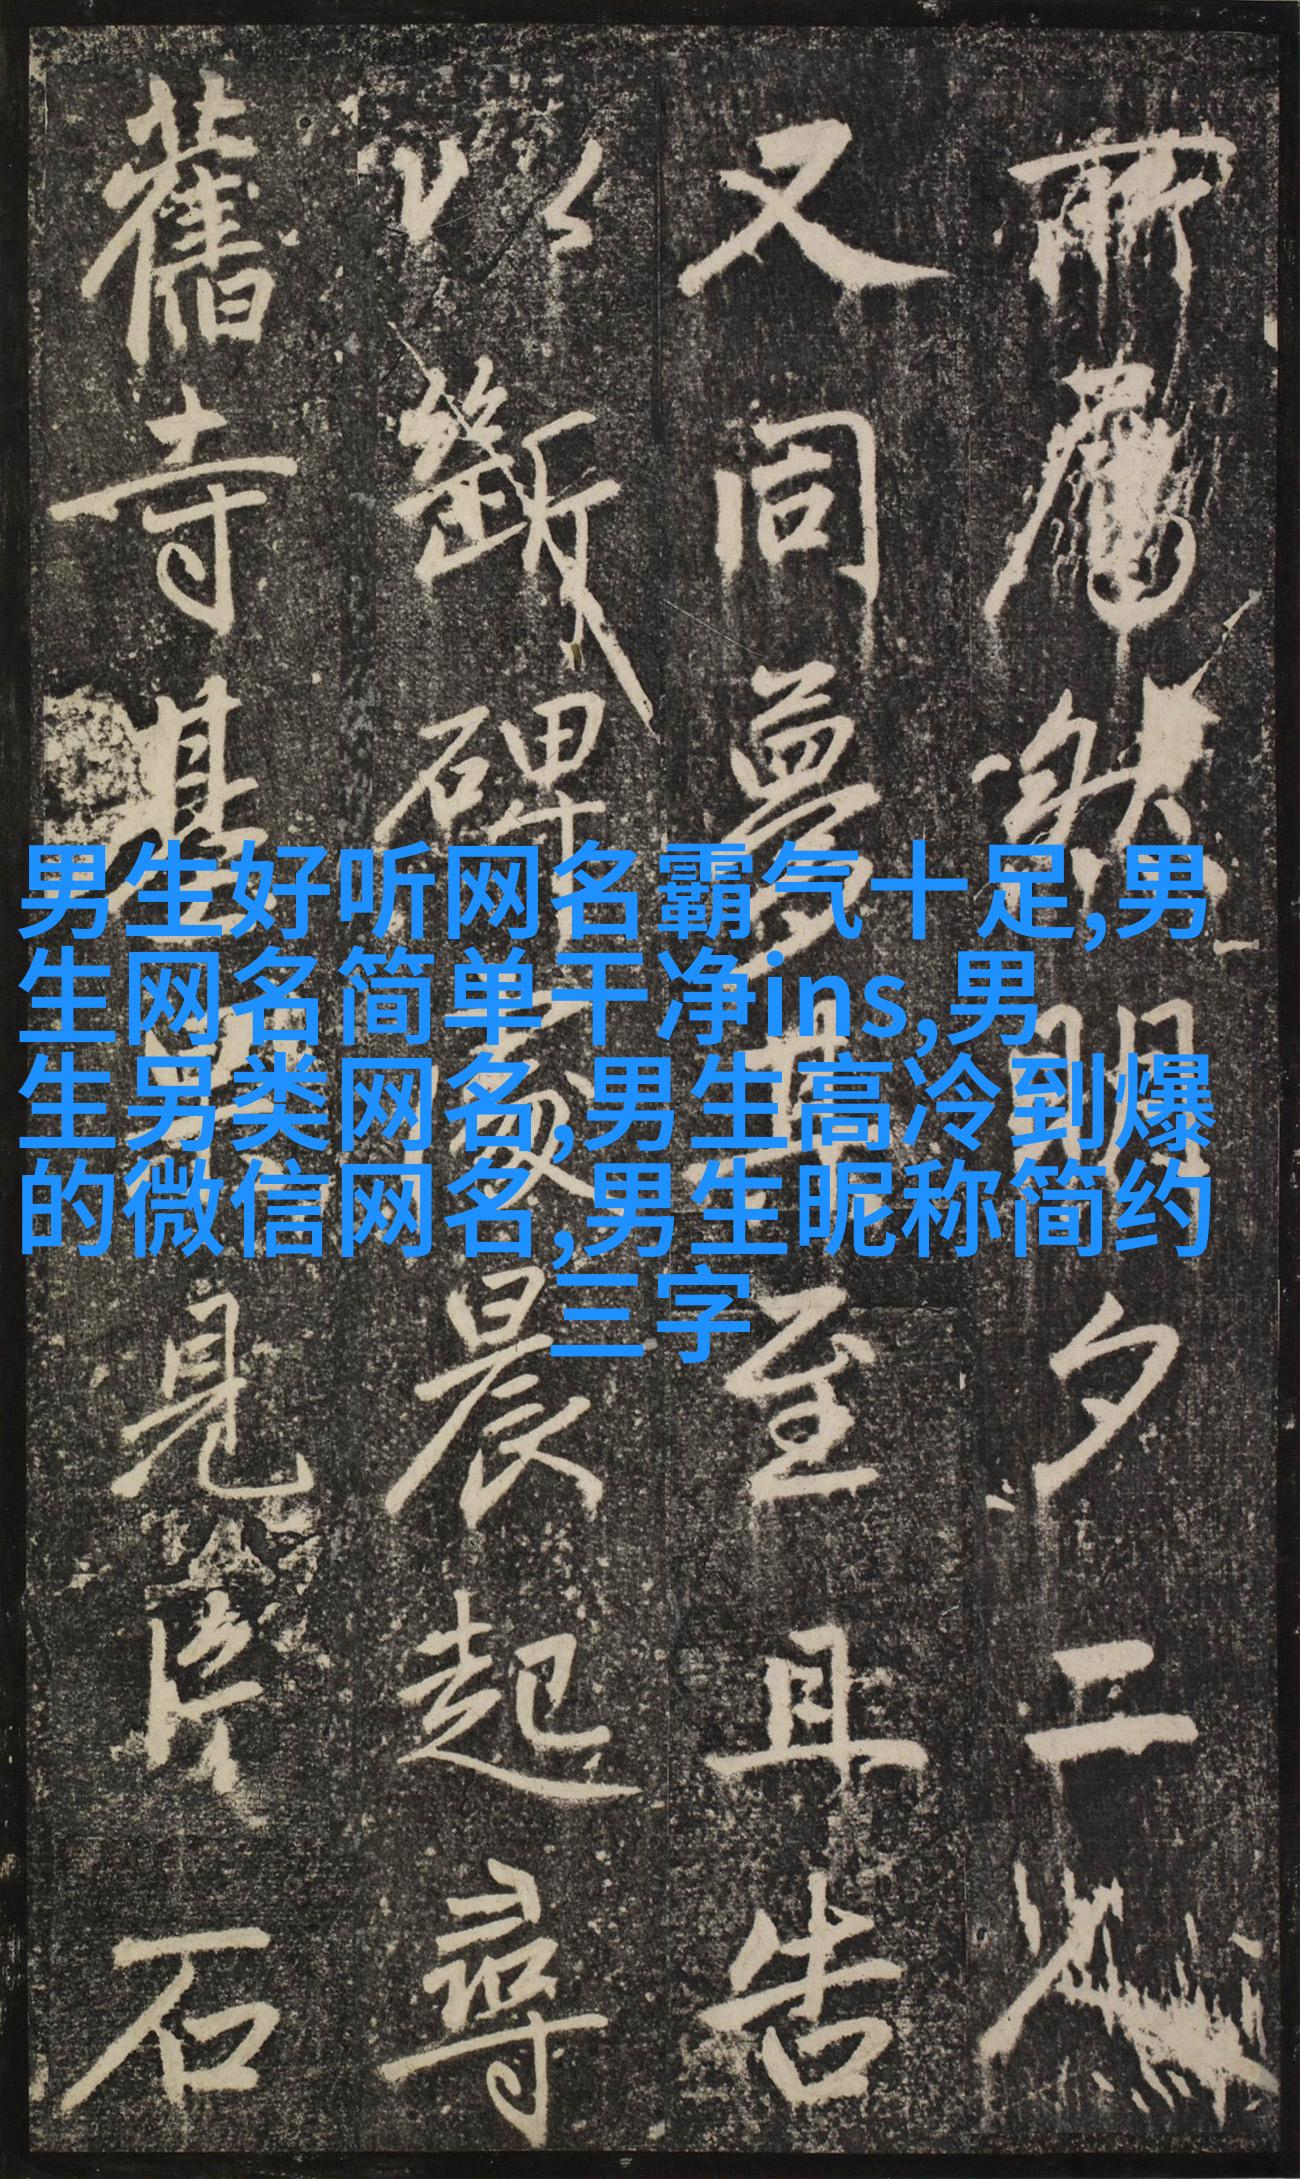 然明夕二
又同夢其至且告
以斷碑處晨起尋
舊寺基果見片石
男生好听网名霸气十足,男
生网名简单干净ins,男
生另类网名,男生高冷到爆
的微信网名,男生昵称简约
三字